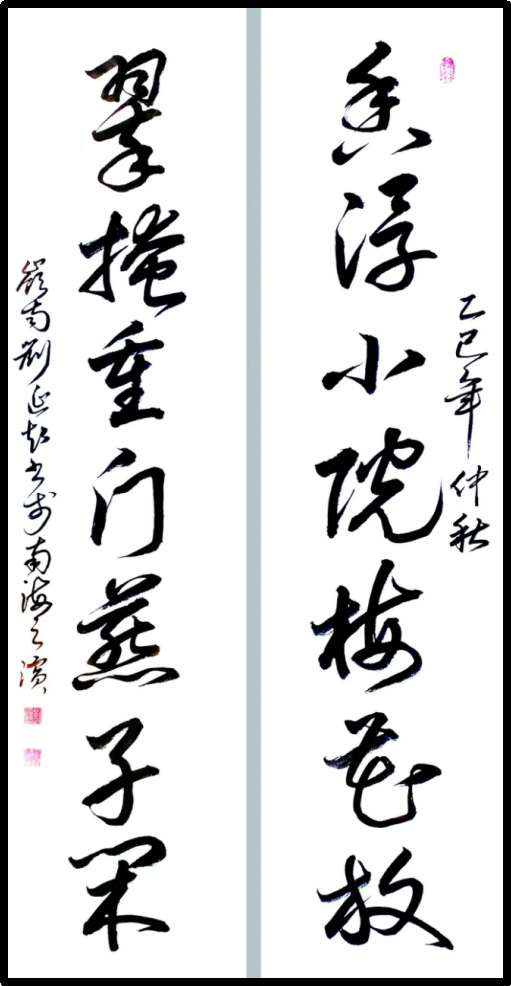 乙巳年仲秋
香浮小院梅花放
翠掩重门燕子闲
岭南刘延超书于南海之滨